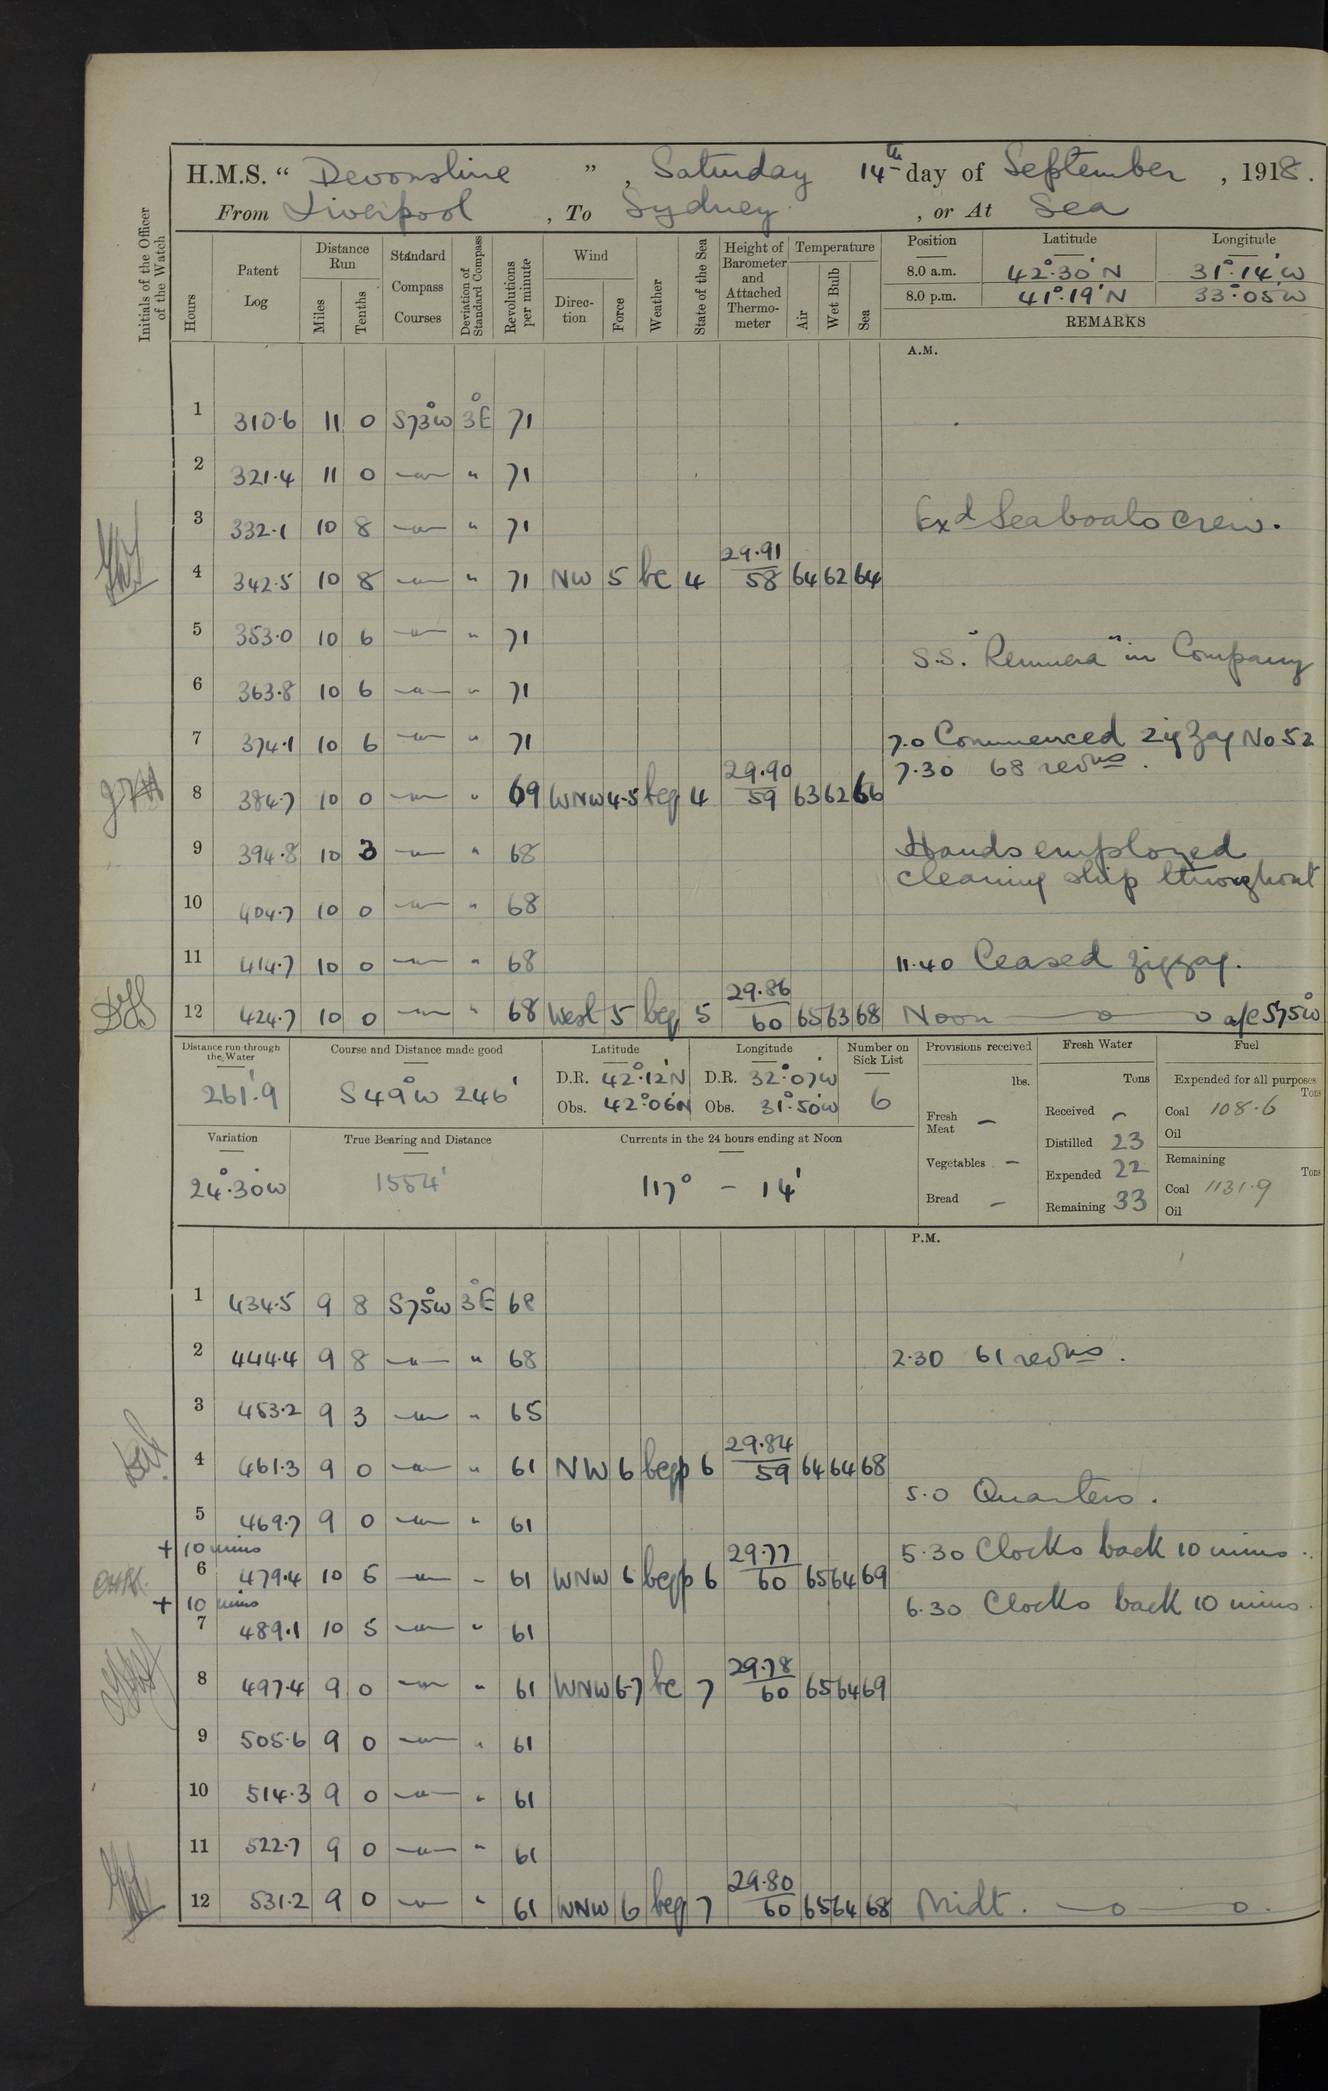 H.M.S. “ Devonshire ” , Saturday 14th day of September , 1918.
From Liverpool , To Sydney , or At Sea
Initials of the Officer of the Watch
Hours
Patent Log
Distance Run
Miles
Tenths
Standard Compass Courses
Deviation of Standard Compass
Revolutions per minute
Wind
Direction
Force
Weather
State of the Sea
Height of Barometer and Attached Thermometer
Temperature
Air
Wet Bulb
Sea
Position Latitude Longitude
8.0 a.m. 42°.30' N 31°.14' W
8.0 p.m. 41°.19' N 33°.05' W
REMARKS
A.M.
1 310.6 11 0 S73°W 3°E 71
2 321.4 11 0 —"— " 71
3 332.1 10 8 —"— " 71 Exd Seaboats crew.
4 342.5 10 8 —"— " 71 NW 5 bc 4 29.91/58 64 62 64
5 353.0 10 6 —"— " 71
S.S. "Remuera" in Company
6 363.8 10 6 —"— " 71
7 374.1 10 6 —"— " 71 7.0 Commenced zig zag No 52
7.30 68 revns.
8 384.7 10 0 —"— " 69 WNW 4-5 bcq 4 29.90/59 63 62 66
9 394.8 10 3 —"— " 68 Hands employed
cleaning ship throughout
10 404.7 10 0 —"— " 68
11 414.7 10 0 —"— " 68 11.40 Ceased zigzag.
12 424.7 10 0 —"— " 68 West 5 bcq 5 29.86/60 65 63 68 Noon —o—o a/c S75°W
Distance run through the Water
261'.9
Course and Distance made good
S49°W 246'
Latitude
D.R. 42°.12'N
Obs. 42°.06'N
Longitude
D.R. 32°.07'W
Obs. 31°.50'W
Number on Sick List
6
Provisions received
lbs.
Fresh Meat —
Vegetables —
Bread —
Fresh Water
Tons
Received —
Distilled 23
Expended 22
Remaining 33
Fuel
Expended for all purposes
Tons
Coal 108.6
Oil
Remaining
Tons
Coal 1131.9
Oil
Variation
24°.30'W
True Bearing and Distance
1554'
Currents in the 24 hours ending at Noon
117° – 14'
P.M.
1 434.5 9 8 S75°W 3°E 68
2 444.4 9 8 —"— " 68 2.30 61 revns.
3 453.2 9 3 —"— " 65
4 461.3 9 0 —"— " 61 NW 6 bcqp 6 29.84/59 64 64 68
5.0 Quarters.
5 469.7 9 0 —"— " 61
+ 10 mins 5.30 Clocks back 10 mins.
6 479.4 10 6 —"— " 61 WNW 6 bcqp 6 29.77/60 65 64 69
+ 10 mins 6.30 Clocks back 10 mins.
7 489.1 10 5 —"— " 61
8 497.4 9 0 —"— " 61 WNW 6-7 bc 7 29.78/60 65 64 69
9 505.6 9 0 —"— " 61
10 514.3 9 0 —"— " 61
11 522.7 9 0 —"— " 61
12 531.2 9 0 —"— " 61 WNW 6 bcq 7 29.80/60 65 64 68 Midt. —o—o.